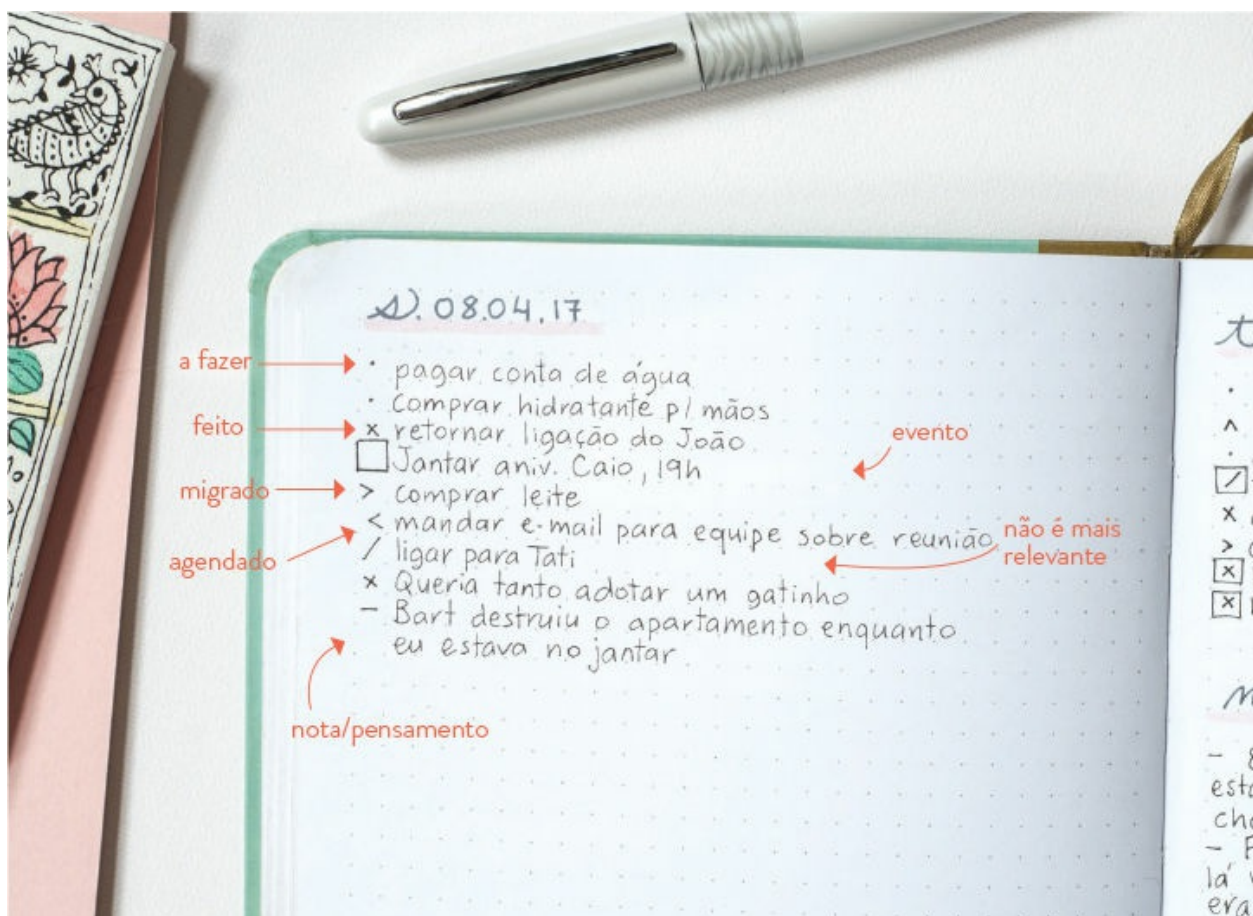 s. 08.04.17
a fazer
· pagar conta de água
· comprar hidratante p/ mãos
feito
x retornar ligação do João
evento
□ Jantar aniv. Caio, 19h
migrado
> comprar leite
< mandar e-mail para equipe sobre reunião
não é mais
relevante
agendado
/ ligar para Tati
x Queria tanto adotar um gatinho
– Bart destruiu o apartamento enquanto
eu estava no jantar
nota/pensamento
t
lá
era